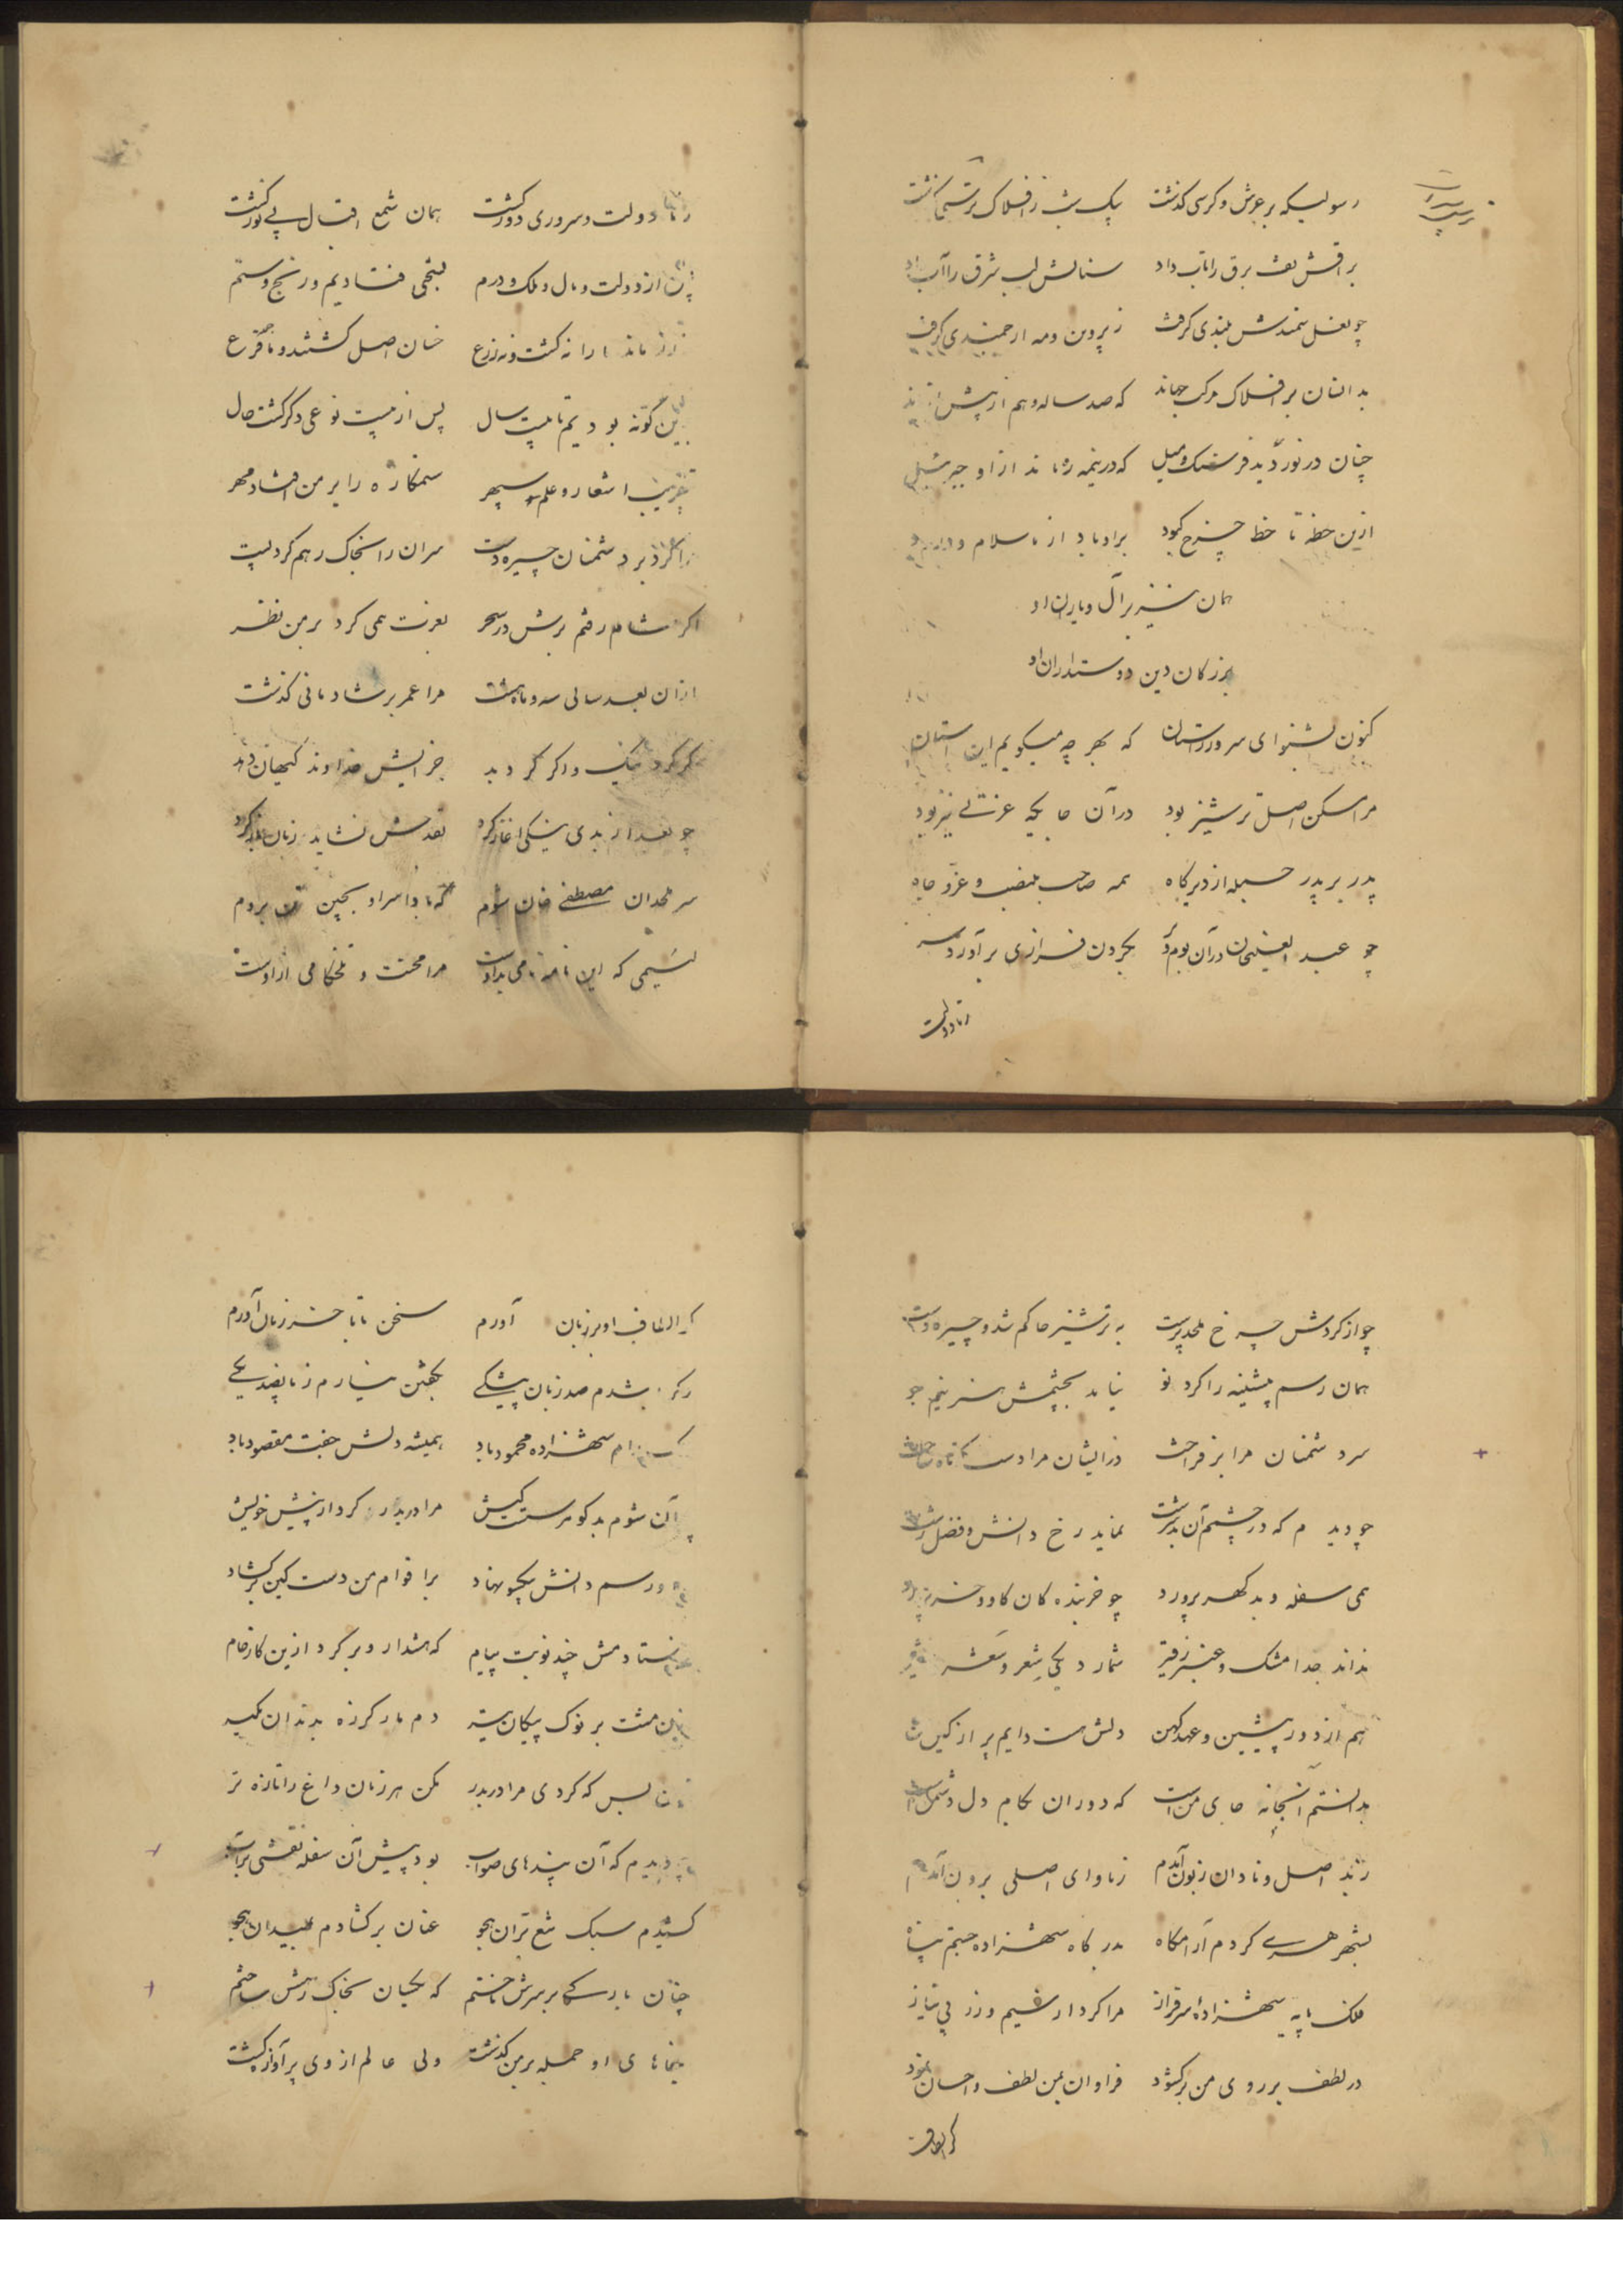 رسولیکه بر عرش و کرسی کذشت بیک شب ز افلاک برتر کذشت
براقش بقف برق را تاب داد سنانش لب شرق را آب داد
چو نعل سمندش بلندی کرفت ز پروین و مه ارجمندی کرفت
بدانسان بر افلاک مرکب جهاند که صد ساله وهم از پیش
چنان در نوردید فرسنک و میل که در نیمه ره ماند ازو جبرئیل
ازین خطه تا خط چرخ کبود برو باد از ما سلام و درود
همان نیز بر آل و یاران او
بزرکان دین دوستداران او
کنون بشنو ای سرور راستان که بهر چه میکویم این داستان
مرا مسکن اصل ترشیز بود در آن جایکه عزتی نیز بود
پدر بر پدر جمله از دیرکاه همه صاحب منصب و عز و جاه
چو عبد الغنیخان در آن بوم و بر بکردن فرازی برآورد سر
ز ما دولت
ز ما دولت و سروری دور کشت همان شمع اقبال بی نور کشت
از دولت و مال و ملک و درم بنجی فتادیم و رنج و ستم
نه ماند ما را نه کشت و نه زرع خسان اصل کشتند و ما جمله فرع
بدین کونه بودیم تا بیست سال پس از بیست نوعی دکر کشت حال
بتقریب اشعار و علم سپهر ستمکاره را بر من افتاد مهر
مرا کرد بر دشمنان چیره دست سران را بخاک رهم کرد پست
اکر شام رفتم برش در سحر بعزت همی کرد بر من نظر
از آن بعد سالی سه و ماه هشت مرا عمر بر شادمانی کذشت
اکر کرد نیک و اکر کرد بد جزایش خداوند کیهان دهد
چو بعد از بدی نیکی آغاز کرد بقدحش نشاید زبان باز کرد
سر ملحدان مصطفی خان شوم که بادا سر او بچین تن بروم
لئیمی که این نامه می یاد اوست مرا محنت و تلخکامی ازوست
چو از کردش چرخ ملحد پرست به ترشیز حاکم شد و چیره دست
همان رسم پیشینه را کرد نو نیامد بچشمش هنر نیم جو
سر دشمنان مرا بر فراخت در ایشان مرا دست کوتاه ساخت
چو دیدم که در چشم آن بد سرشت نماید رخ دانش و فضل زشت
همی سفله و بد کهر پرورد چو خربنده کان کاو و خر پرورد
نداند جدا مشک و عنبر ز قیر شمارد یکی شعر و شعر شعیر
هم از دور پیشین و عهد کهن دلش هست دایم پر از کین من
بدانستم آنجا نه جای من است که دوران بکام دل دشمن است
ز بد اصل و نادان زبون آمدم ز ماوای اصلی برون آمدم
بشهر هری کردم آرامکاه بدرکاه شهزاده جستم پناه
ملک پایه شهزادهٔ سرفراز مرا کرد از سیم و زر بی نیاز
در لطف بر روی من برکشود فراوان بمن لطف و احسان نمود
کر الطاف
کر الطاف او بر زبان آورم سخن تا بآخر زمان آورم
و کر باشدم صد زبان بیشکی بکفتن نیارم ز ما نصد یکی
شهزاده محمود باد همیشه دلش جفت مقصود باد
آن شوم بدکوهر سست کیش مرا دربدر کرد از پیش خویش
رسم دانش بیکسو نهاد بر اقوام من دست کین برکشاد
فرستادمش چند نوبت پیام که هشدار و برکرد ازین کار خام
مزن مشت بر نوک پیکان تیز دم مار کرزه بدندان مکیر
بس که کردی مرا دربدر مکن هر زمان داغ را تازه تر
چو دیدم که آن پندهای صواب بود پیش آن سفله نقشی بر آب
کشیدم سبک تیغ بران هجو عنان برکشادم بمیدان هجو
چنان بارکی بر سرش تاختم که یکسان بخاک رهش ساختم
جفاهای او جمله بر من کذشت ولی عالم از وی پر آوازه کشت